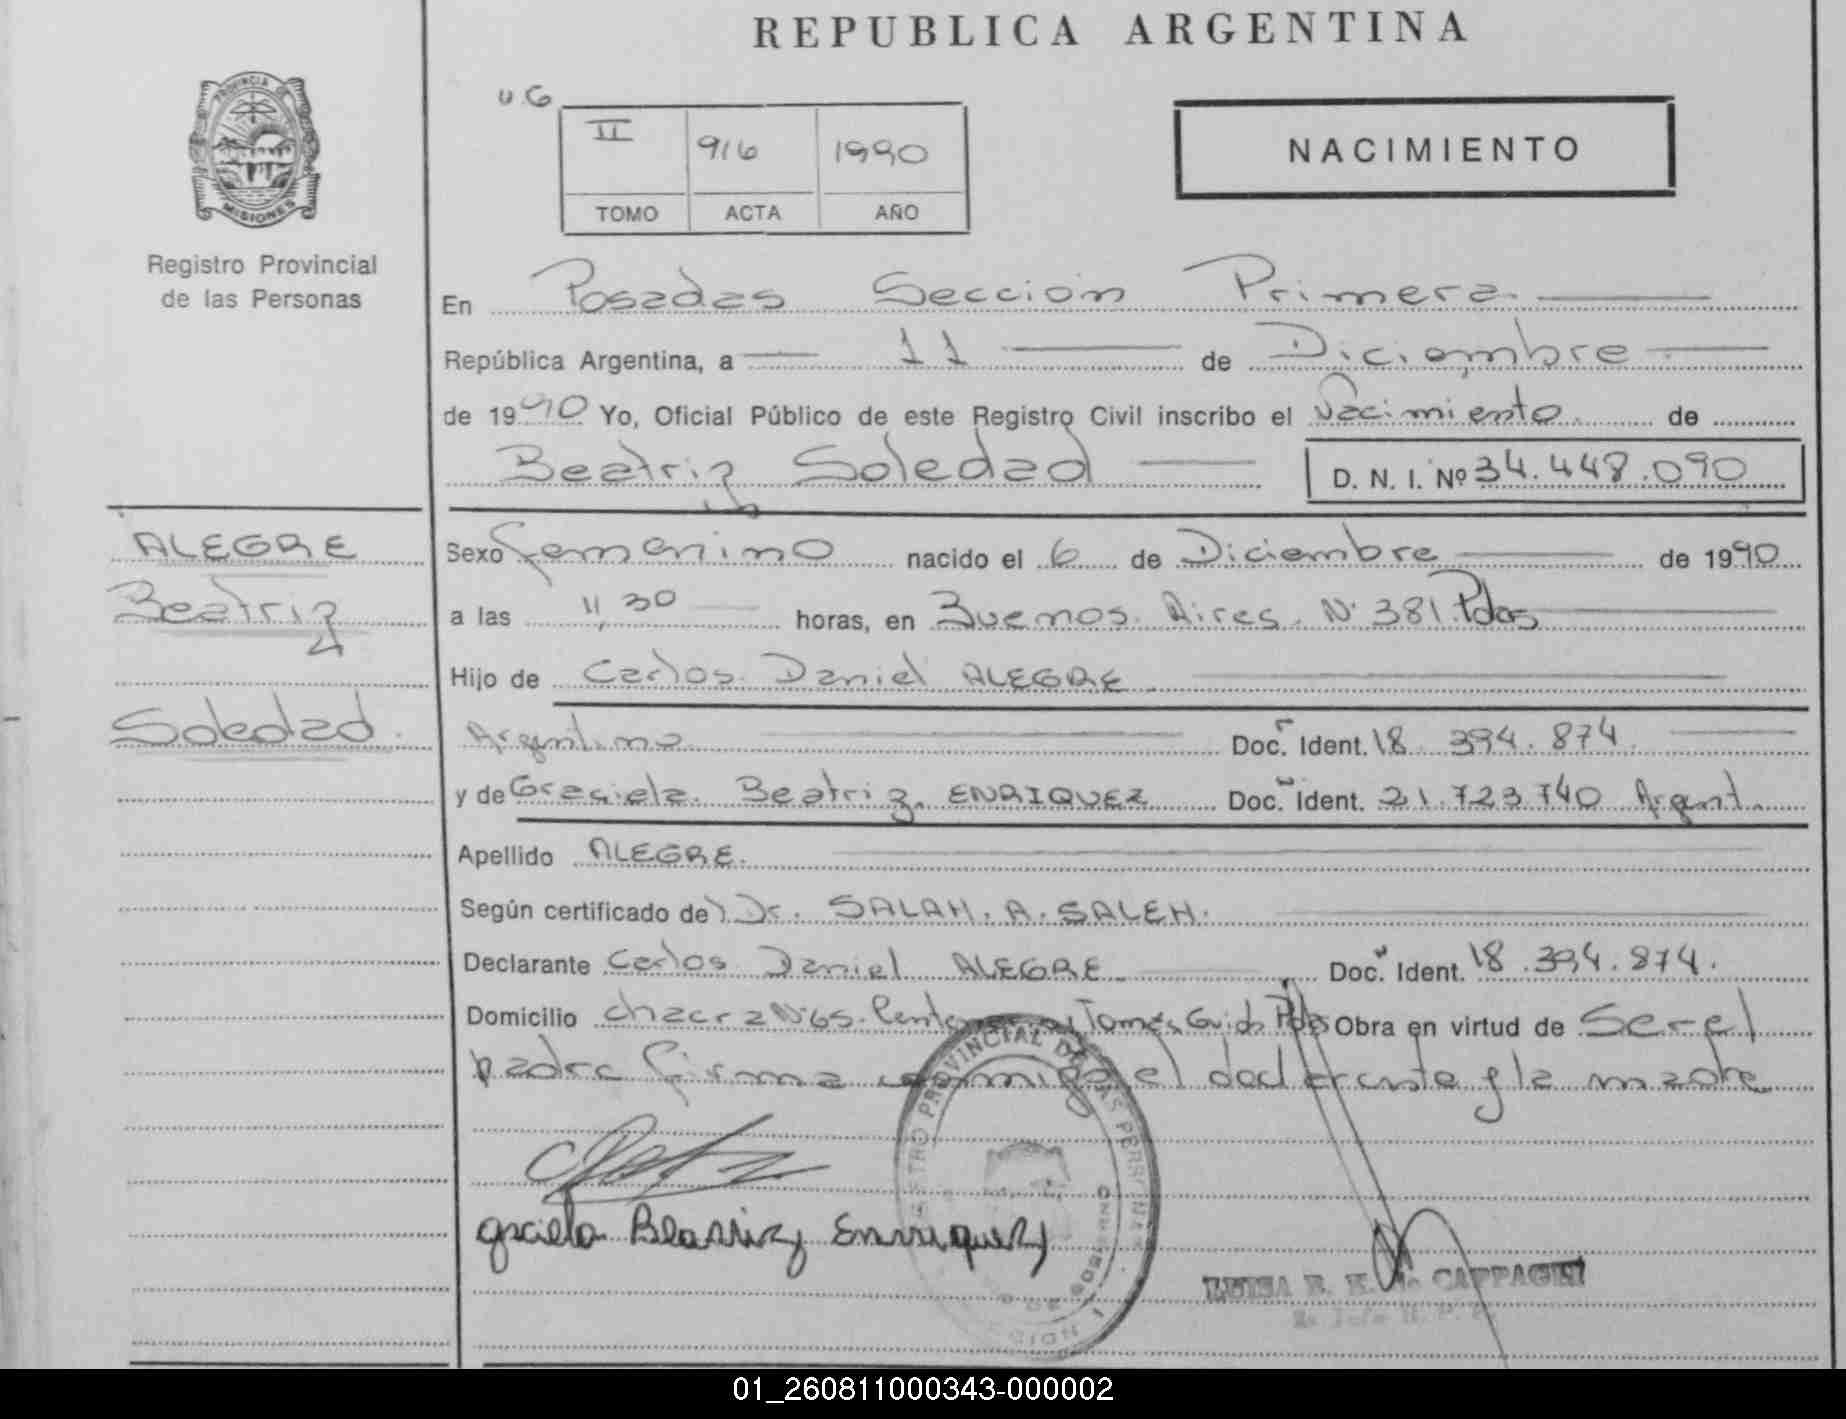 REPUBLICA ARGENTINA
PROVINCIA DE
MISIONES
Registro Provincial
de las Personas
U.G
II 916 1990
TOMO ACTA AÑO
NACIMIENTO
En Posadas Sección Primera
República Argentina, a 11 de Diciembre
de 1990 Yo, Oficial Público de este Registro Civil inscribo el Nacimiento de
Beatriz Soledad D. N. I. Nº 34.448.090
ALEGRE
Beatriz
Soledad.
Sexo femenino nacido el 6 de Diciembre de 1990
a las 11,30 horas, en Buenos Aires. Nº 381. Pdas
Hijo de Carlos Daniel ALEGRE
Argentino Doc. Ident. 18.394.874
y de Graciela Beatriz ENRIQUEZ Doc. Ident. 21.723.740 Argent.
Apellido ALEGRE.
Según certificado de Dr. SALAH. A. SALEH.
Declarante Carlos Daniel ALEGRE Doc. Ident. 18.394.874.
Domicilio chacra Nº 65. Tomás Guido Pdas Obra en virtud de Ser el
padre firma conmigo el declarante y la madre
REGISTRO PROVINCIAL DE LAS PERSONAS
graciela Beatriz Enrriquez
LUISA E. K. de CAPPAGLI
01_260811000343-000002